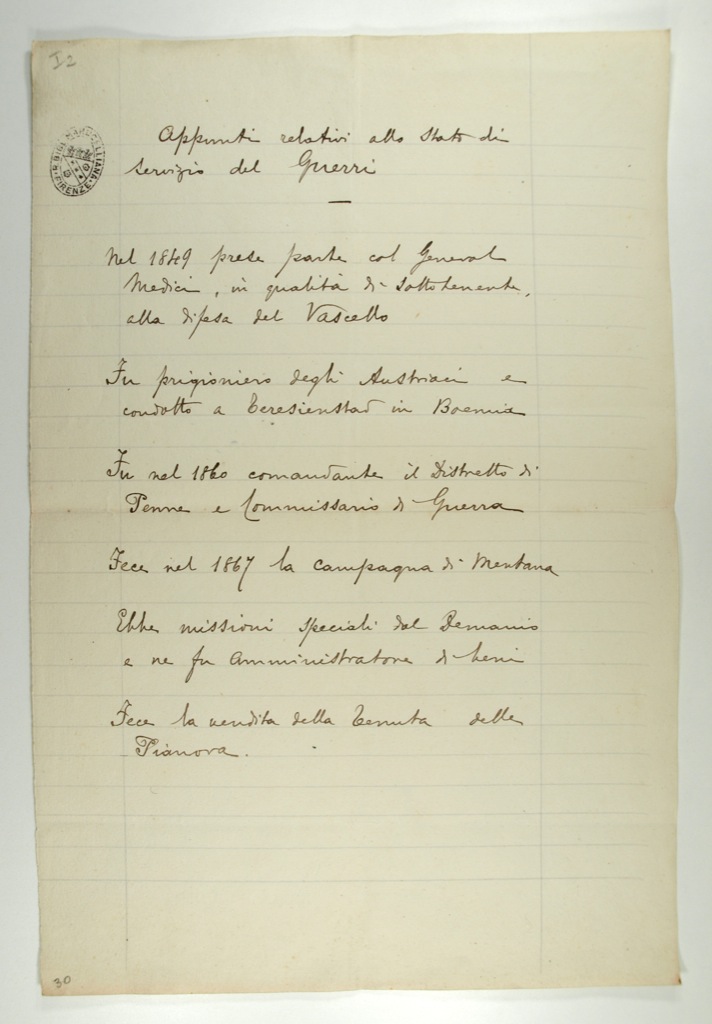 I 2
R. BIBL. MARUCELLIANA
FIRENZE
Appunti relativi allo stato di
servizio del Guerri
Nel 1849 prese parte col General
Medici, in qualità di sottotenente,
alla difesa del Vascello
Fu prigioniero degli Austriaci e
condotto a Teresienstad in Boemia
Fu nel 1860 comandante il Distretto di
Penne e Commissario di Guerra
Fece nel 1867 la campagna di Mentana
Ebbe missioni speciali dal Demanio
e ne fu Amministratore di beni
Fece la vendita della Tenuta delle
Pianora.
30